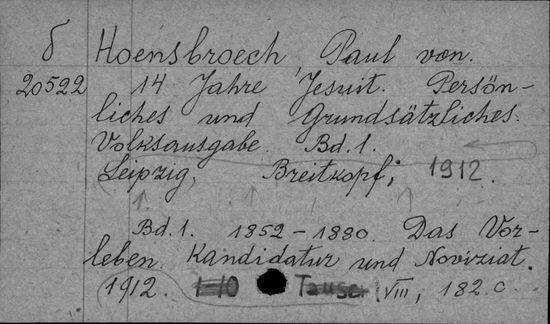 б Hoensbroech, Paul von.
20522 14 Jahre Jesuit. Persön-
liches und Grundsätzliches.
Volksausgabe. Bd. 1.
Leipzig, Breitkopf, 1912.
Bd. 1. 1852-1880. Das Vor-
leben. Kandidatur und Noviziat.
1912. 1-10 Tausen VIII, 182 c.